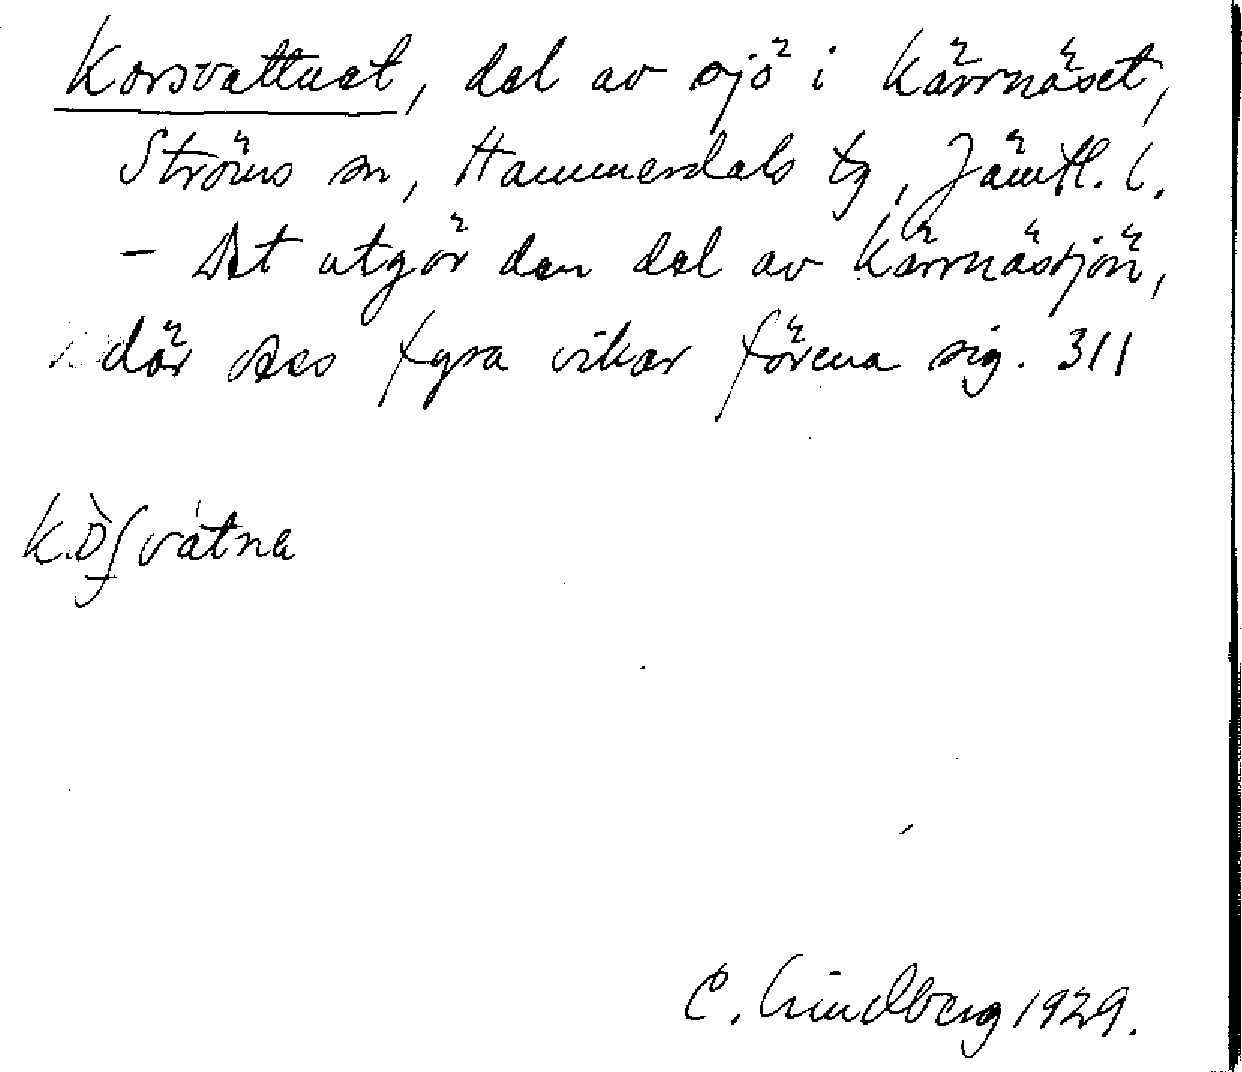 Korsvattnet, del av sjö i Kärrnäset,
Ströms sn, Hammerdals tg, Jämtl. l.
- Det utgör den del av Kärrnässjön,
där dess fyra vikar förena sig. 311
C. Lindberg 1929.